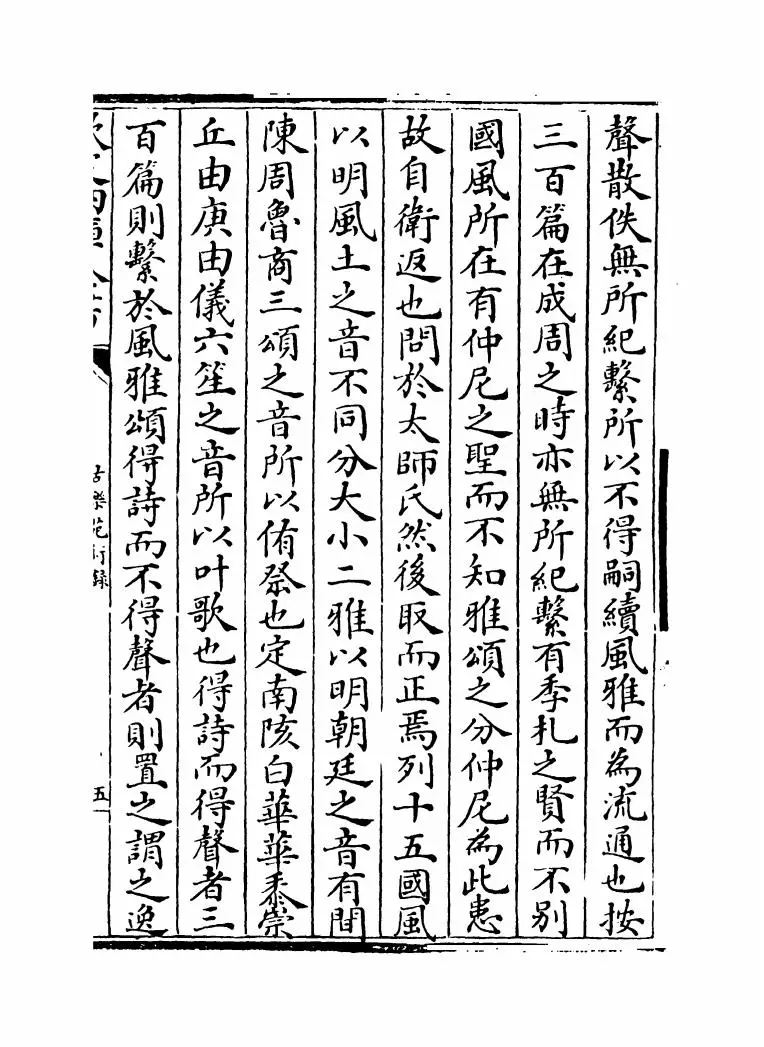 聲散佚無所紀繫所以不得嗣續風雅而為流通也按
三百篇在成周之時亦無所紀繫有季札之賢而不别
國風所在有仲尼之聖而不知雅頌之分仲尼為此患
故自衛返也問於太師氏然後取而正焉列十五國風
以明風土之音不同分大小二雅以明朝廷之音有間
陳周魯商三頌之音所以侑祭也定南陔白華華黍崇
丘由庚由儀六笙之音所以叶歌也得詩而得聲者三
百篇則繫於風雅頌得詩而不得聲者則置之謂之逸
欽定四庫全書
古樂苑衍録
五